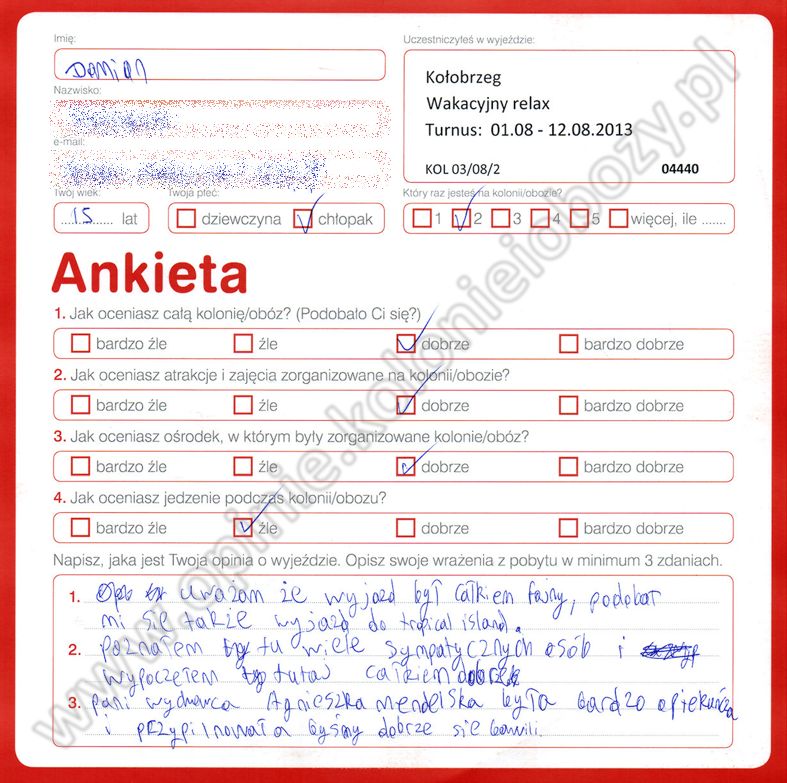 Imię:
Uczestniczyłeś w wyjeździe:
Damian
Kołobrzeg
Wakacyjny relax
Turnus: 01.08 - 12.08.2013
KOL 03/08/2 04440
Nazwisko:
e-mail:
Twój wiek: Twoja płeć: Który raz jesteś na kolonii/obozie?
15 lat dziewczyna chłopak 1 2 3 4 5 więcej, ile .......
Ankieta
1. Jak oceniasz całą kolonię/obóz? (Podobało Ci się?)
bardzo źle źle dobrze bardzo dobrze
2. Jak oceniasz atrakcje i zajęcia zorganizowane na kolonii/obozie?
bardzo źle źle dobrze bardzo dobrze
3. Jak oceniasz ośrodek, w którym były zorganizowane kolonie/obóz?
bardzo źle źle dobrze bardzo dobrze
4. Jak oceniasz jedzenie podczas kolonii/obozu?
bardzo źle źle dobrze bardzo dobrze
Napisz, jaka jest Twoja opinia o wyjeździe. Opisz swoje wrażenia z pobytu w minimum 3 zdaniach.
1. uważam że wyjazd był całkiem fajny, podobał
mi się także wyjazd do tropical island.
2. poznałem tu wiele sympatycznych osób i
wypocząłem tutaj całkiem dobrze
3. pani wychowawca Agnieszka mendelska była bardzo opiekuńcza
i przypilnowała byśmy dobrze się bawili.
www.opinie.kolonieiobozy.pl